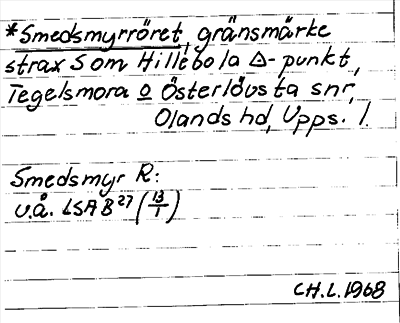 *Smedsmyrröret, gränsmärke
strax S om Hillebola Δ-punkt,
Tegelsmora o Österlövsta snr,
Olands hd, Upps. l.
Smedsmyr R:
u.å. LSA B 27 (13/1)
CH.L. 1968